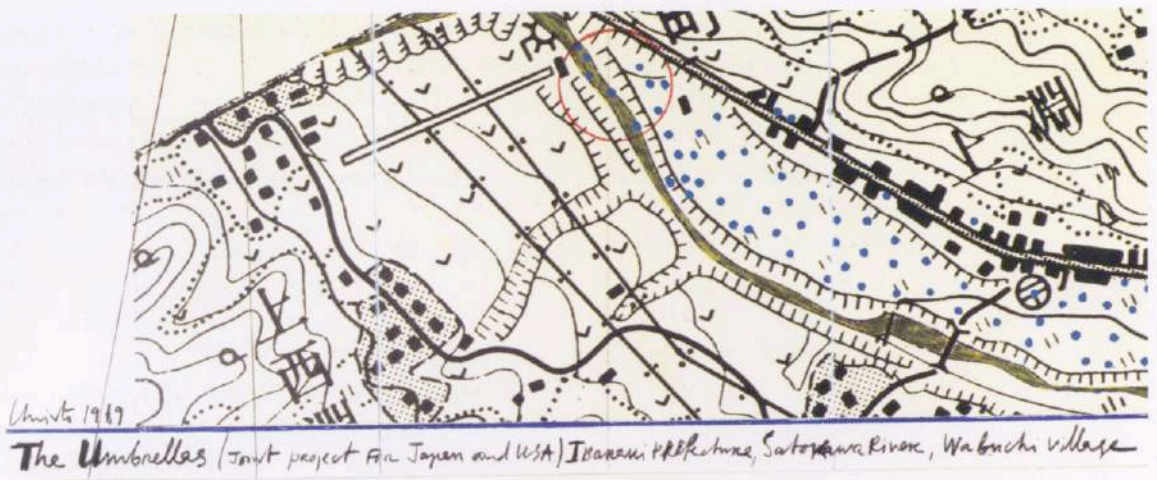 Christo 1989
The Umbrellas (Joint project for Japan and USA) Ibaraki Prefecture, Satokawa River, Wabuchi Village